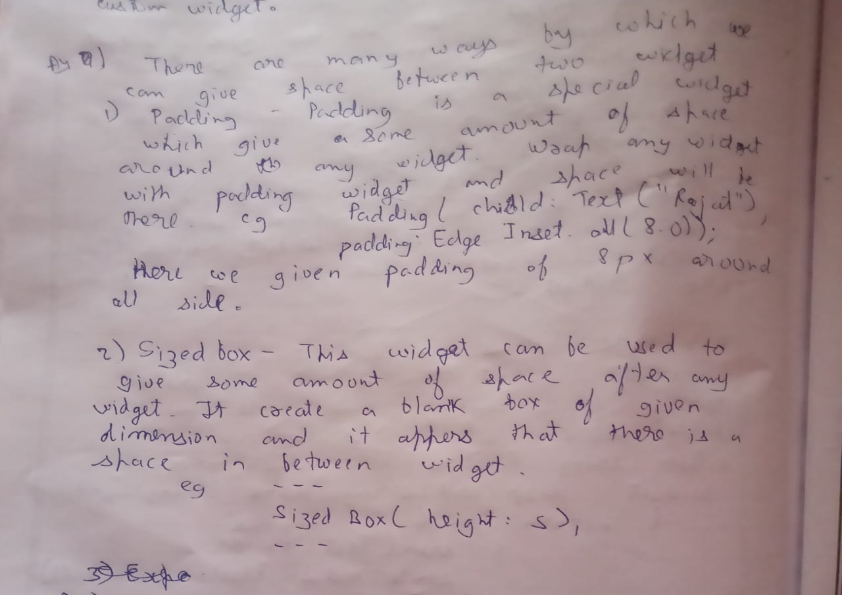 custom widget.
9) There are many ways by which we
can give space between two widget
1) Padding - Padding is a special widget
which give a some amount of space
around any widget. Wrap any widget
with padding widget and space will be
there. eg Padding( child: Text ("Rajat"),
padding: Edge Inset. all(8.0));
Here we given padding of 8px around
all side.
2) Sized box - This widget can be used to
give some amount of space after any
widget. It create a blank box of given
dimension and it appers that there is a
space in between widget.
eg ---
Sized Box( height: 5),
---
3) Expa